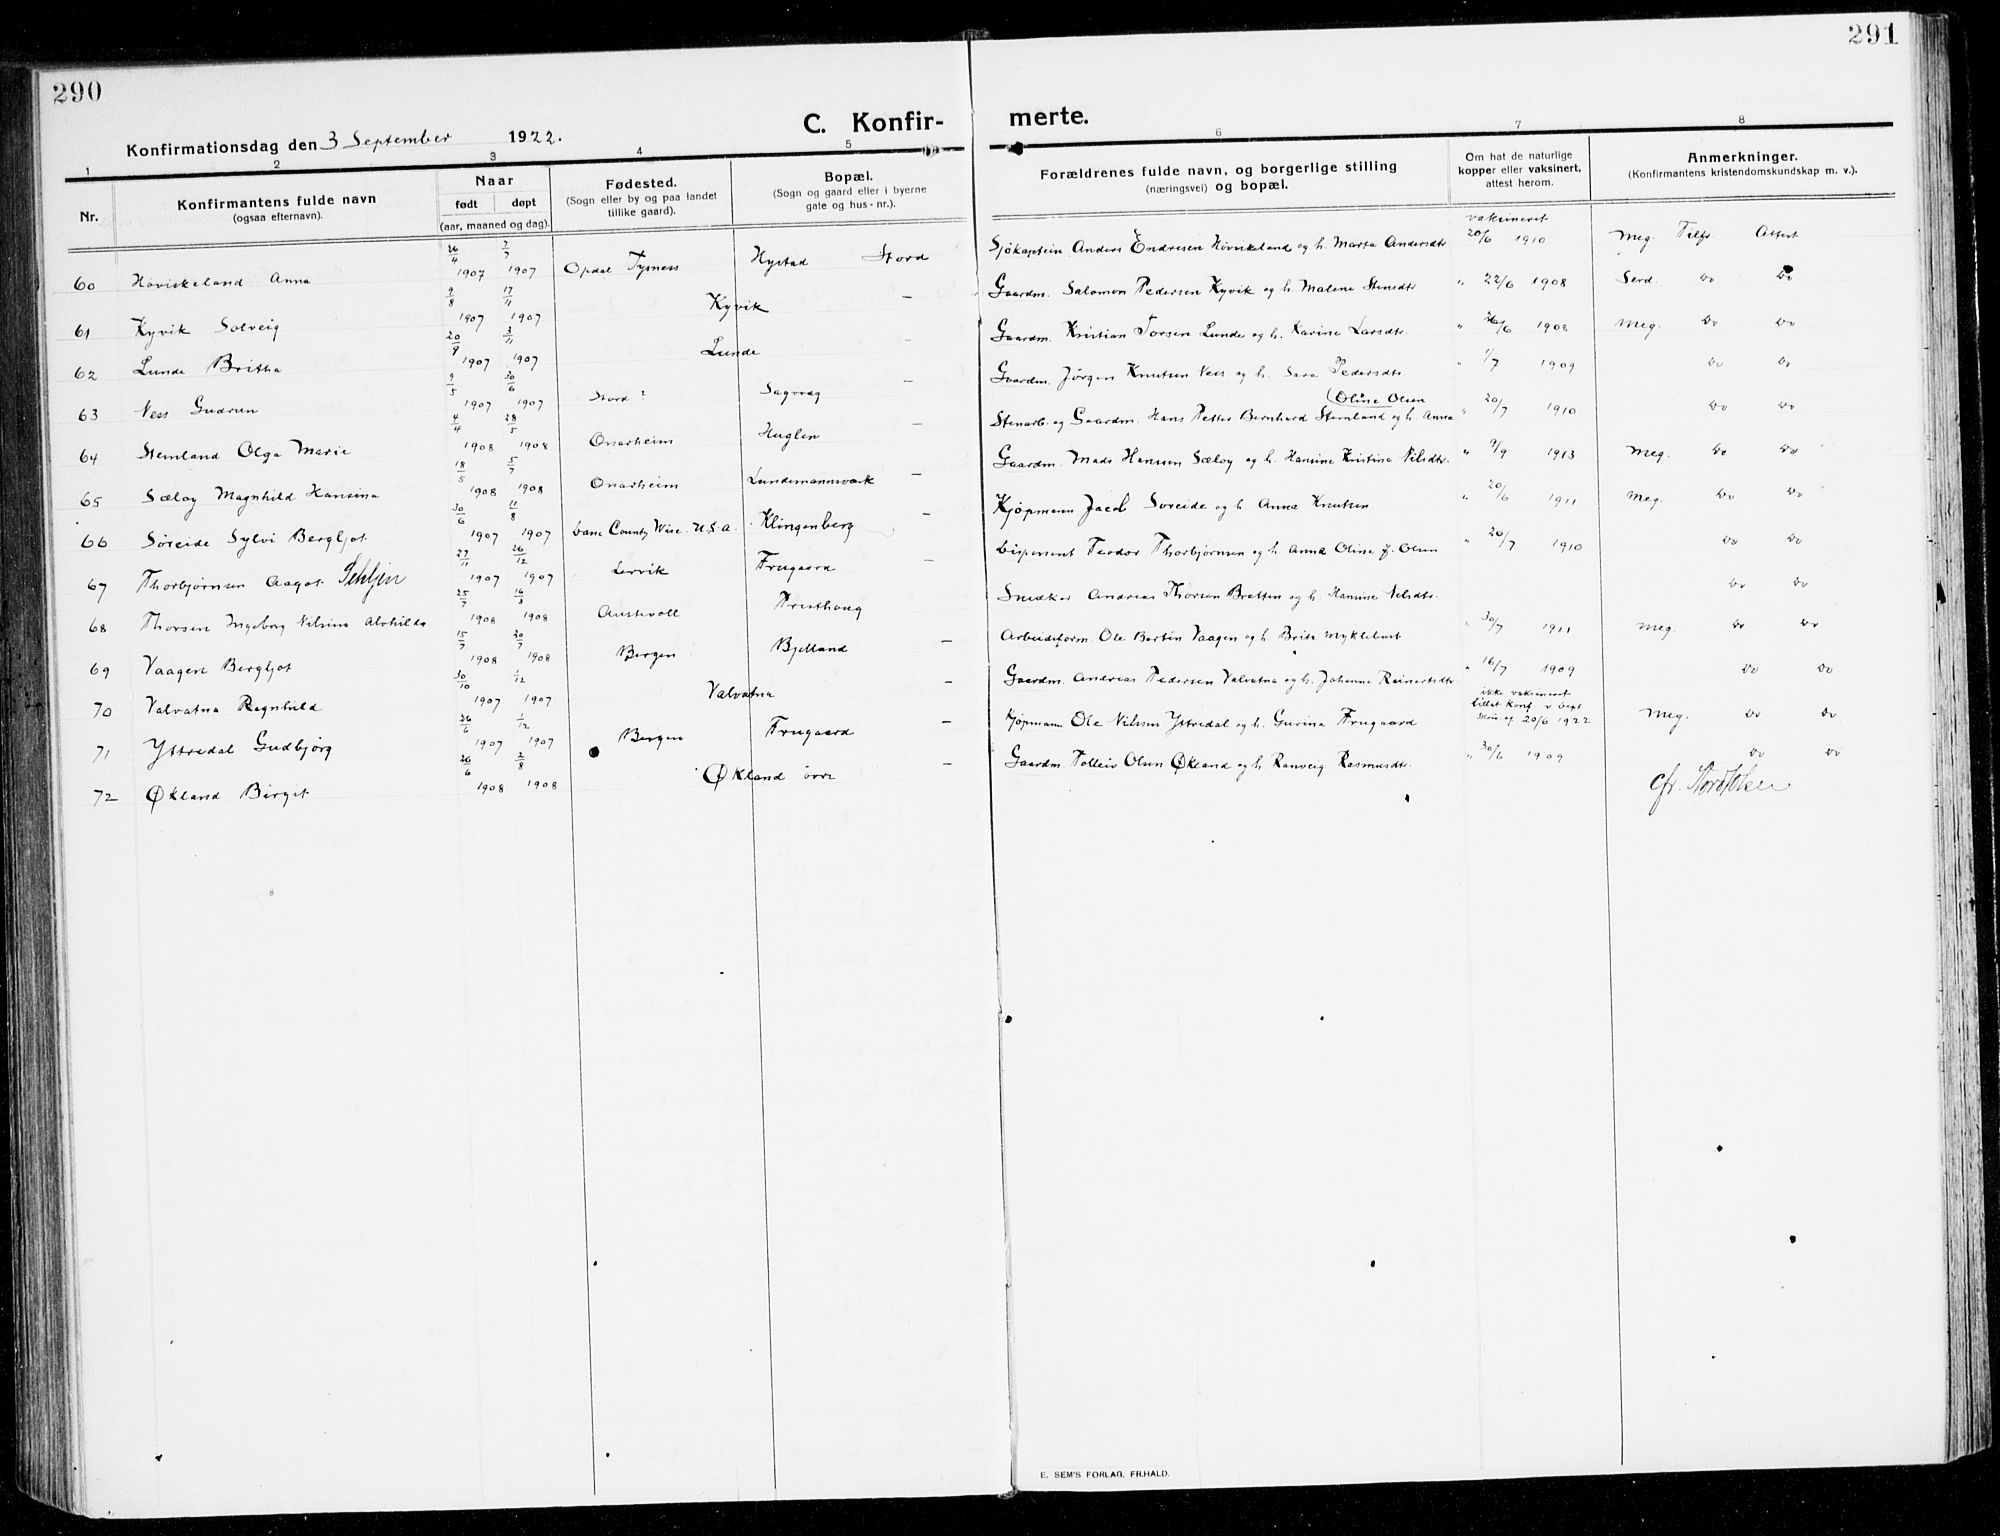 290
291
C. Konfir-
merte.
Konfirmationsdag den 3 September 1922.
1 2 3 4 5 6 7 8
Nr.
Konfirmantens fulde navn
(ogsaa efternavn).
Naar
født døpt
(aar, maaned og dag).
Fødested.
(Sogn eller by og paa landet
tillike gaard).
Bopæl.
(Sogn og gaard eller i byerne
gate og hus-nr.).
Forældrenes fulde navn, og borgerlige stilling
(næringsvei) og bopæl.
Om hat de naturlige
kopper eller vaksinert,
attest herom.
Anmerkninger.
(Konfirmantens kristendomskundskap m. v.).
60 Høviskeland Anna 26/4 1907 7/7 1907 Opdal Tysness Hystad Stord Sjökaptein Anders Endresen Höviskeland og h. Marta Andersdtr vaksineret 20/6 1910 Meg. Tilfr. Attest
61 Kyvik Solveig 9/8 1907 17/11 1907 Kyvik — Gaardm. Salomon Pedersen Kyvik og h. Malene Stensdtr " 22/6 1908 Serd. Do Do
62 Lunde Britha 20/9 1907 3/11 1907 Lunde - Gaardm. Kristian Torsen Lunde og h. Karine Larsdtr. " 26/6 1908 Meg. Do Do
63 Ness Gudrun 9/5 1907 30/6 1907 Stord Sagvaag — Gaardm. Jørgen Knutsen Ness og h. Sara Pedersdtr " 1/7 1909 Do Do
64 Stemland Olga Marie 4/4 1908 28/5 1908 Onarheim Huglen — Stenarb. og Gaardm. Hans Petter Bernhard Stemland og h. Anna (Oline Olsen " 20/7 1910 Do Do
65 Sæløy Magnhild Hansina 18/5 1908 5/7 1908 Onarheim Lundemannsværk — Gaardm. Mads Hanssen Sæloy og h. Hansine Kristine Nilsdtr. " 9/9 1913 Meg. Do Do
66 Søreide Sylvi Bergljot 30/6 1907 11/8 1907 Dane County Wisc. U.S.A. Klingenberg — Kjøpmann Jacob Soreide og h. Anna Knutsen " 20/6 1911 Meg. Do Do
67 Thorbjørnsen Aagot Sehljin 27/11 1907 26/12 1907 Lervik Frugaard — Disponent Teodor Thorbjørnsen og h. Anna Oline J. Olsen " 20/7 1910 Do Do
68 Thorsen Ingeborg Nilsina Alvhilda 25/7 1908 16/8 1908 Austevoll Presthaug Snedker Andreas Thorsen Bratten og h. Hansine Nilsdtr. Do Do
69 Vaagen Bergljot 15/7 1908 20/7 1908 Bergen Bjelland — Arbeidsform. Ole Bertin Vaagen og h. Brite Myklebust " 30/7 1911 Meg. Do Do
70 Valvatna Ragnhild 30/10 1907 1/12 1907 Valvatna — Gaardm. Andreas Pedersen Valvatna og h. Johanne Reinertsdtr. " 16/7 1909 Do Do
71 Ystredal Gudbjørg 26/6 1907 1/12 1907 Bergen Frugaard — Kjøpmann Ole Nilssen Ystredal og h. Gurina Frugaard ikke vaksineret tillat Konf. v Dept skriv. af 20/6 1922 Meg. Do Do
72 Økland Birget 26/6 1908 2/8 1908 Økland øvre — Gaardm. Tolleiv Olsen Økland og h. Ranveig Rasmusdtr. " 30/6 1909 Do Do
E. SEM'S FORLAG, FR.HALD.